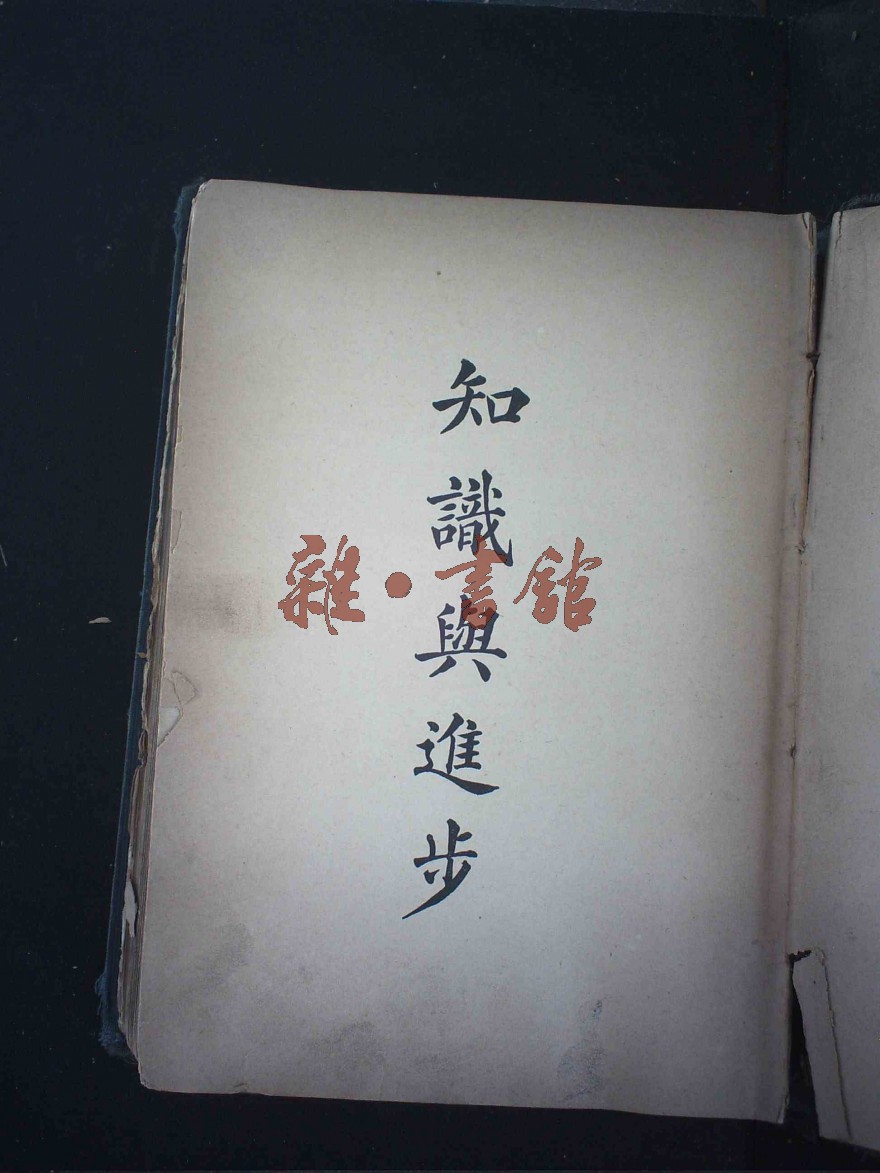 知識與進步
雜·書館